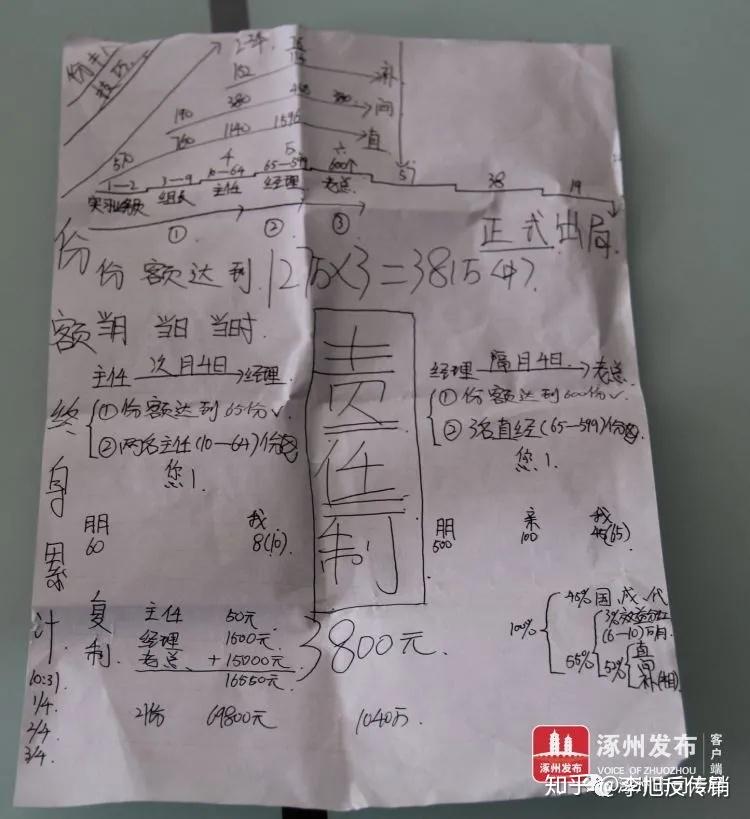 销售
技巧
2.3年
152
补
190
380
间
760
1140
1596
直
570
4
5
六
1-2
3-9
10-64
65-599
600个
57
38
19
实习业务员
组长
主任
经理
老总
① ② ③
正式出局
份额达到1275×3=3815(4)?
份额终身累计
当月 当日 当时
主任 次月4日→经理
①份额达到65份✓
②两名主任(10-64)份
您1
责任制
经理 隔月4日→老总
①份额达到600份✓
②3名直经(65-599)份
您1
朋
60
我
8(10)
朋
500
亲
100
我
45(65)
复制
主任 50元
经理 1500元
老总 +15000元
16550元
3800元
100%
45% 国 成 代
55%
3%效益分红
(6-10)万/月
52%
直
间
补(相)
10:31
1/4
2/4
3/4
21份 69800元 1040万
涿州发布
涿州发布
VOICE OF ZHUOZHOU
客户端
知乎 @李旭反传销